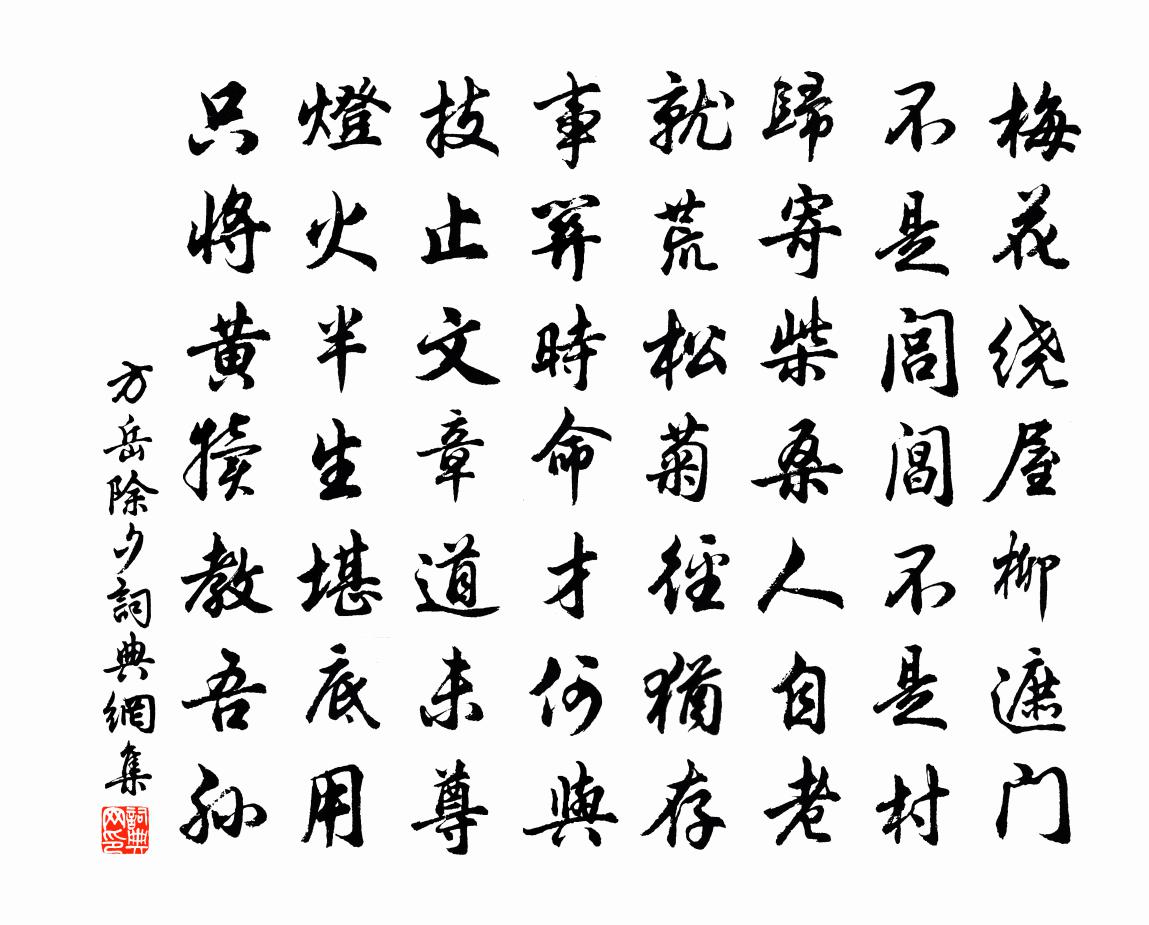 梅花绕屋柳遮门
不是閭閻不是村
歸寄柴桑人自老
就荒松菊徑猶存
事關時命才何與
技止文章道未尊
燈火半生堪底用
只將黄犢教吾孙
方岳除夕詞典網集
詞典网印